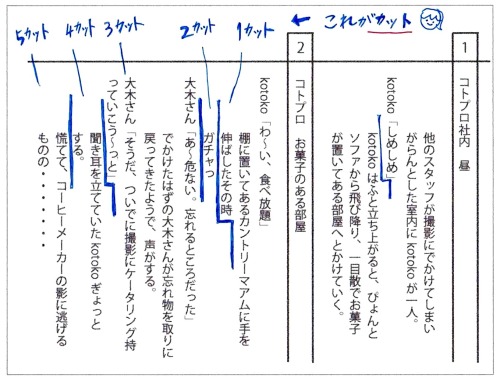 これがカット
1カット
2カット
3カット
4カット
5カット
1
コトプロ社内　昼
他のスタッフが撮影にでかけてしまい
がらんとした室内に kotoko が一人。
kotoko「しめしめ」
kotoko はふと立ち上がると、ぴょんと
ソファから飛び降り、一目散でお菓子
が置いてある部屋へとかけていく。
2
コトプロ　お菓子のある部屋
kotoko「わ～い、食べ放題」
棚に置いてあるカントリーマアムに手を
伸ばしたその時
ガチャっ
大木さん「あ～危ない。忘れるところだった」
でかけたはずの大木さんが忘れ物を取りに
戻ってきたようで、声がする。
大木さん「そうだ、ついでに撮影にケータリング持
っていこう～っと」
聞き耳を立てていた kotoko ぎょっと
する。
慌てて、コーヒーメーカーの影に逃げる
ものの・・・・・・・